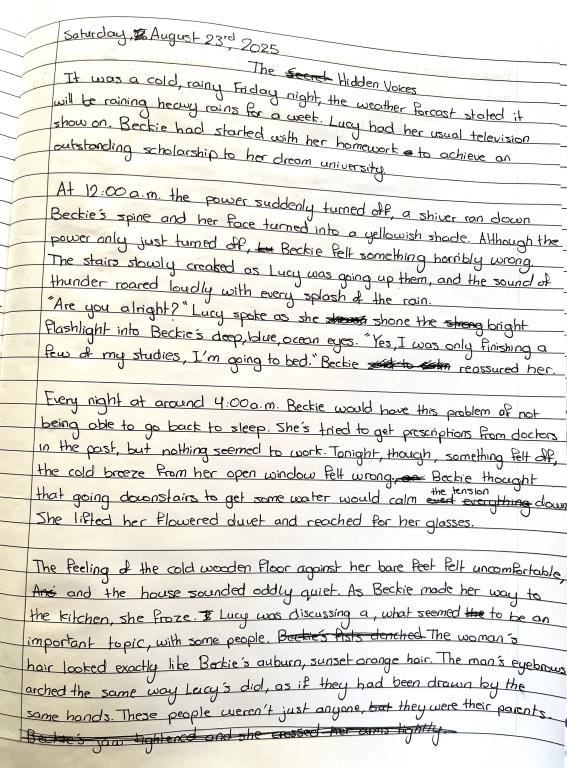 Saturday, August 23rd, 2025
The Secret Hidden Voices
It was a cold, rainy Friday night, the weather forcast stated it
will be raining heavy rains for a week. Lucy had her usual television
show on. Beckie had started with her homework to achieve an
outstanding scholarship to her dream university.
At 12:00a.m. the power suddenly turned off, a shiver ran down
Beckie's spine and her face turned into a yellowish shade. Although the
power only just turned off, but Beckie felt something horribly wrong.
The stairs slowly creaked as Lucy was going up them, and the sound of
thunder roared loudly with every splash of the rain.
"Are you alright?" Lucy spoke as she shone the strong bright
flashlight into Beckie's deep, blue, ocean eyes. "Yes, I was only finishing a
few of my studies, I'm going to bed." Beckie reassured her.
Every night at around 4:00a.m. Beckie would have this problem of not
being able to go back to sleep. She's tried to get prescriptions from doctors
in the past, but nothing seemed to work. Tonight, though, something felt off,
the cold breeze from her open window felt wrong. Beckie thought
that going downstairs to get some water would calm the tension everything down
She lifted her flowered duvet and reached for her glasses.
The feeling of the cold wooden floor against her bare feet felt uncomfortable,
And and the house sounded oddly quiet. As Beckie made her way to
the kitchen, she froze. Lucy was discussing a, what seemed the to be an
important topic, with some people. Beckie's fists clenched The woman's
hair looked exactly like Beckie's auburn, sunset orange hair. The man's eyebrows
arched the same way Lucy's did, as if they had been drawn by the
same hands. These people weren't just anyone, but they were their parents.
Beckie's jaw tightened and she crossed her arms tightly.